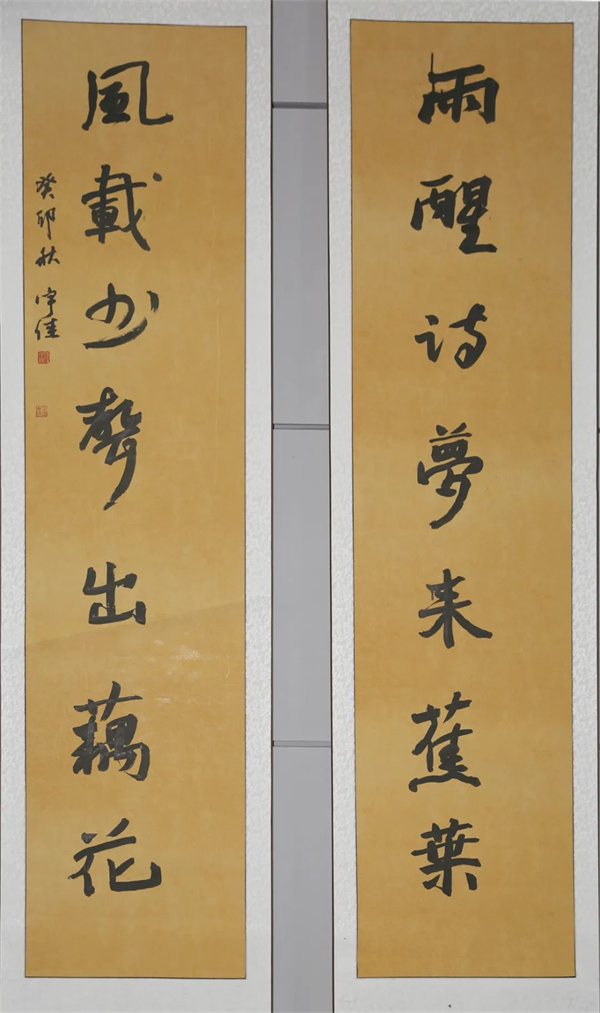 雨醒诗夢来蕉葉
風載书聲出藕花
癸卯秋宇佳